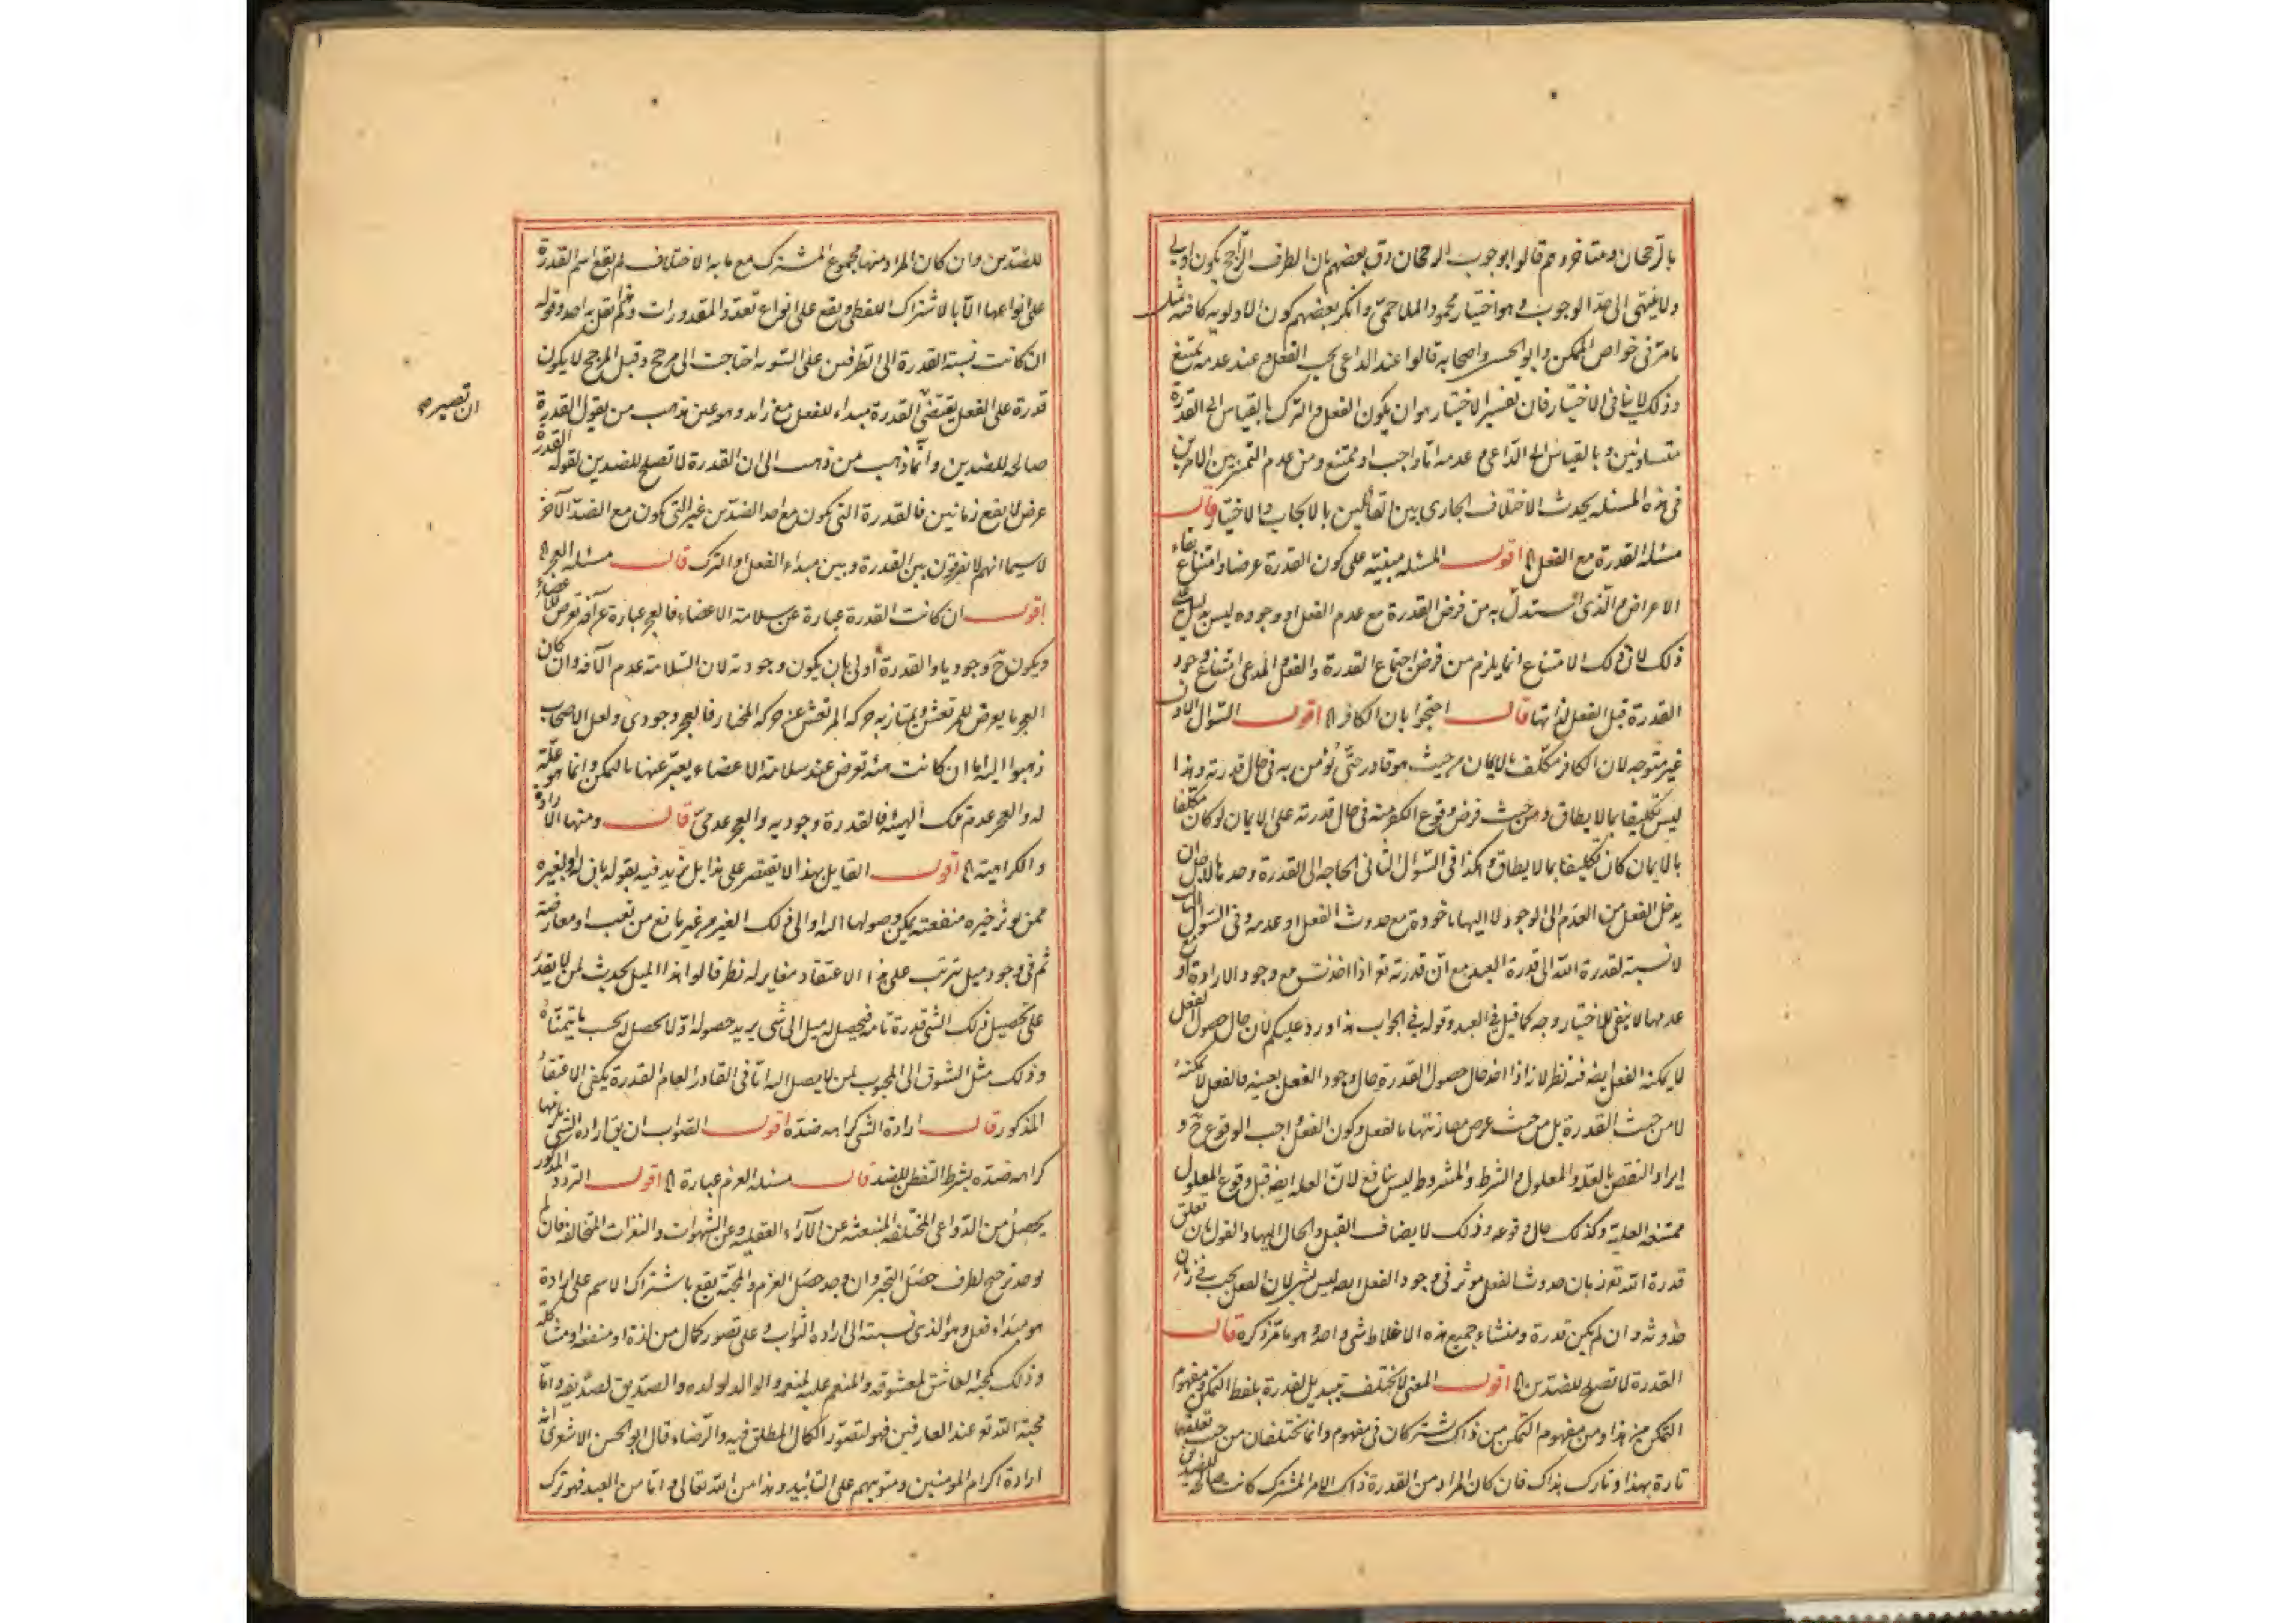 بالرجحان ومتأخروهم قالوا بوجوب الرجحان وق بعضهم بان الطرف الراجح يكون اولى
ولا ينتهى الى حدّ الوجوب وهو اختيار محمود الملاحمىّ وانكر بعضهم كون الاولوية كافية مثل
ما مرّ فى خواص الممكن وابو الحسين واصحابه قالوا عند الداعى يجب الفعل وعند عدمه يمتنع
وذلك لا ينافى الاختيار فان تفسير الاختيار هو ان يكون الفعل والترك بالقياس الى القدرة
متساويين وبالقياس الى الداعى وعدمه امّا واجب او ممتنع ومن عدم التميز بين الامرين
فى هذه المسئله يحدث الاختلاف الجارى بين القائلين بالايجاب والاختيار قال
مسئلة القدرة مع الفعل الخ اقول المسئله مبنيّة على كون القدرة عرضا وامتناع بقاء
الاعراض والّذى استدلّ به من فرض القدرة مع عدم الفعل او وجوده ليس بدليل على
ذلك لان ذلك الامتناع انما يلزم من فرض اجتماع القدرة والفعل والمدعى امتناع وجود
القدرة قبل الفعل لذاتها قال احتجوا بان الكافر الخ اقول السّوال الاول
غير متوجه لان الكافر مكلّف بالايمان من حيث هو قادر حتّى يؤمن به فى حال قدرته وهذا
ليس تكليفا بما لا يطاق ومن حيث فرض وقوع الكفر منه فى حال قدرته على الايمان لو كان مكلفا
بالايمان كان تكليفا بما لا يطاق وهكذا فى السّوال الثانى الحاجه الى القدرة وحدها لاجل ان
يدخل الفعل من العدم الى الوجود لا اليها ماخوذة مع حدوث الفعل او عدمه وفى السّوال الثالث
لا نسبة لقدرة اللّه الى قدرة العبد مع انّ قدرته تع اذا اخذت مع وجود الارادة او مع
عدمها لا يبقى للاختيار وجه كما قيل فى العبد وقوله فى الجواب هذا وارد عليكم لان حال حصول الفعل
لا يمكنه الفعل ايضا فيه نظر لانه اذا اخذ حال حصول القدرة حال وجود الفعل بعينه فالفعل لا يمكنه
لا من حيث القدرة بل من حيث عرض مقارنتها بالفعل وكون الفعل واجب الوقوع ح و
ايراد النقض بالعلّة والمعلول والشرط والمشروط ليس بنافع لانّ العله ايضا قبل وقوع المعلول
ممتنعة العلية وكذلك حال وقوعه وذلك لا يضاف القبل والحال اليها والقول بان تعلق
قدرة اللّه تع زمان حدوث الفعل موثر فى وجود الفعل ايضا ليس بشىء لان الفعل يجب فى زمان
حدوثه وان لم يكن قدرة ومنشاء جميع هذه الاغلاط شى واحد وهو ما مرّ ذكره قال
القدرة لا تصلح للضدّين الخ اقول المعنى لا يختلف بتبديل لقدرة بلفظ التمكن ومفهوم
التمكن من هذا ومن مفهوم التمكن من ذاك مشتركان فى مفهوم وانما يختلفان من حيث تعلقهما
تارة بهذا وتارك بذاك فان كان المراد من القدرة ذاك الامر المشترك كانت صالحة للضدين
للضدّين وان كان المراد منها مجموع المشترك مع ما به الاختلاف لم يقع اسم القدرة
على انواعها الاّ بالاشتراك اللفظى ويقع على انواع تعدد المقدورات ولم يقل به احد وقوله
ان كانت نسبة القدرة الى الطرفين على السّويه احتاجت الى مرجح وقبل المرجح لا يكون
قدرة على الفعل يقتضى القدرة مبداء للفعل مع زايد وهو عين مذهب من يقول القدرة
ان تصير صح
صالحه للضدين وانّما ذهب من ذهب الى ان القدرة لا تصلح للضدين لقوله القدرة
عرض لا يقع زمانين فالقدرة التى تكون مع احد الضدّين غير التى تكون مع الضدّ الآخر
لا سيما انهم لا يفرقون بين القدرة وبين مبداء الفعل او الترك قال مسئله العجز الخ
اقول ان كانت القدرة عبارة عن سلامة الاعضاء فالعجز عبارة عن آفة تعرض للاعضاء
ويكون ح وجوديا والقدرة أولى بان يكون وجوديه لان السّلامة عدم الآفه وان كان
العجز ما يعرض للمرتعش ويمتاز به حركة المرتعش عن حركة المختار فالعجز وجودى ولعل الاصحاب
ذهبوا اليه اما ان كانت هيئه تعرض عند سلامة الاعضاء يعبّر عنها بالتمكن وانما هو علّة
له والعجز عدم تلك الهيئه فالقدرة وجوديه والعجز عدمىّ قال ومنها الارادة
والكراهية الخ اقول القايل بهذا لا يقتصر على هذا بل يزيد فيه بقوله بان له او لغيره
ممن يوثر خيره منفعة يمكن وصولها اليه او الى ذلك الغير من غير مانع من تعب او معارضة
ثم فى وجود ميل يترتب على هذا الاعتقاد مغاير له نظر قالوا هذا الميل يحدث لمن لا يقدر
على تحصيل ذلك الشى قدرة تامه فيحصل له ميل الى شى يريد حصوله اوّلا يحصل له بحسب ما يتمنّاه
وذلك مثل الشوق الى المحبوب لمن لا يصل اليه امّا فى القادر العام القدرة يكفى الاعتقاد
المذكور قال ارادة الشى كراهة ضدّه اقول الصّواب ان يق ارادة الشى يلزمها
كراهة ضدّه بشرط التفطن للضد قال مسئله العزم عبارة الخ اقول التردد المذكور
يحصل من الدّواعى المختلفه المنبعثه عن الآراء العقليه وعن الشّهوات والنفرات المتخالفه فان لم
يوجد ترجيح لطرف حصل التحيّر وان وجد حصل العزم والمحبّة يقع باشتراك الاسم على ارادة
هو مبداء فعل وهو الذى نسبته الى ارادة الثواب وعلى تصور كمال من لذة او منفعة او مشاكلة
وذلك كمحبّة العاشق لمعشوقه والمنعم عليه لمنعمه والوالد لولده والصدّيق لصديقه وامّا
محبّة اللّه تع عند العارفين فهو لتصوّر الكمال المطلق فيه والرّضاء قال ابو الحسن الاشعرى انه
ارادة اكرام المومنين ومثوبتهم على التابيد وهذا من اللّه تعالى وامّا من العبد فهو ترك